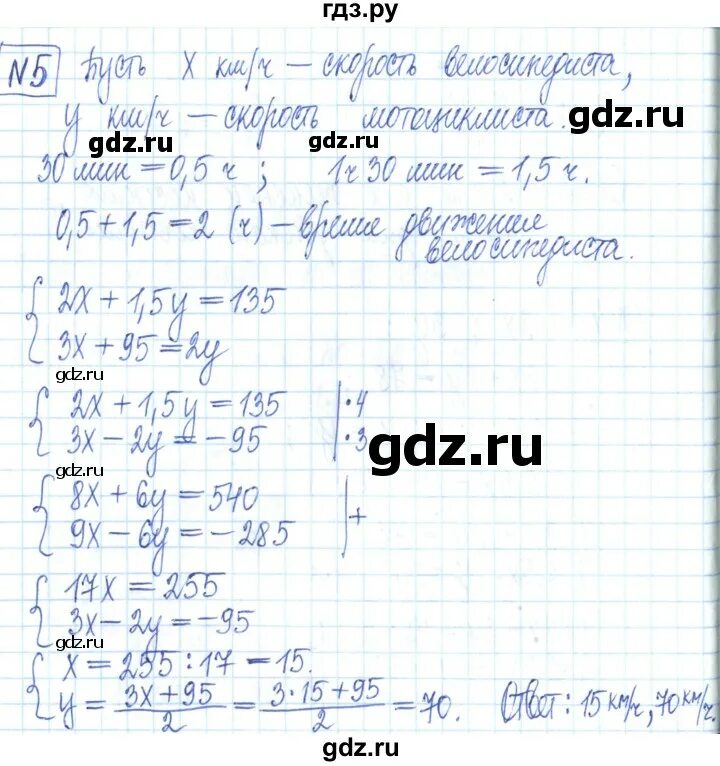 гдз.ру
№5 Пусть x км/ч – скорость велосипедиста,
y км/ч – скорость мотоциклиста.
gdz.ru gdz.ru
30 мин = 0,5 ч ; 1ч 30 мин = 1,5 ч.
0,5 + 1,5 = 2 (ч) – время движения
велосипедиста.
2x + 1,5y = 135
3x + 95 = 2y
gdz.ru
2x + 1,5y = 135 | · 4
3x – 2y = – 95 | · 3
gdz.ru
gdz.ru
8x + 6y = 540
9x – 6y = – 285 | +
17x = 255
3x – 2y = –95
gdz.ru
x = 255 : 17 = 15.
y = (3x + 95)/2 = (3·15 + 95)/2 = 70. Ответ: 15 км/ч, 70 км/ч.
gdz.ru